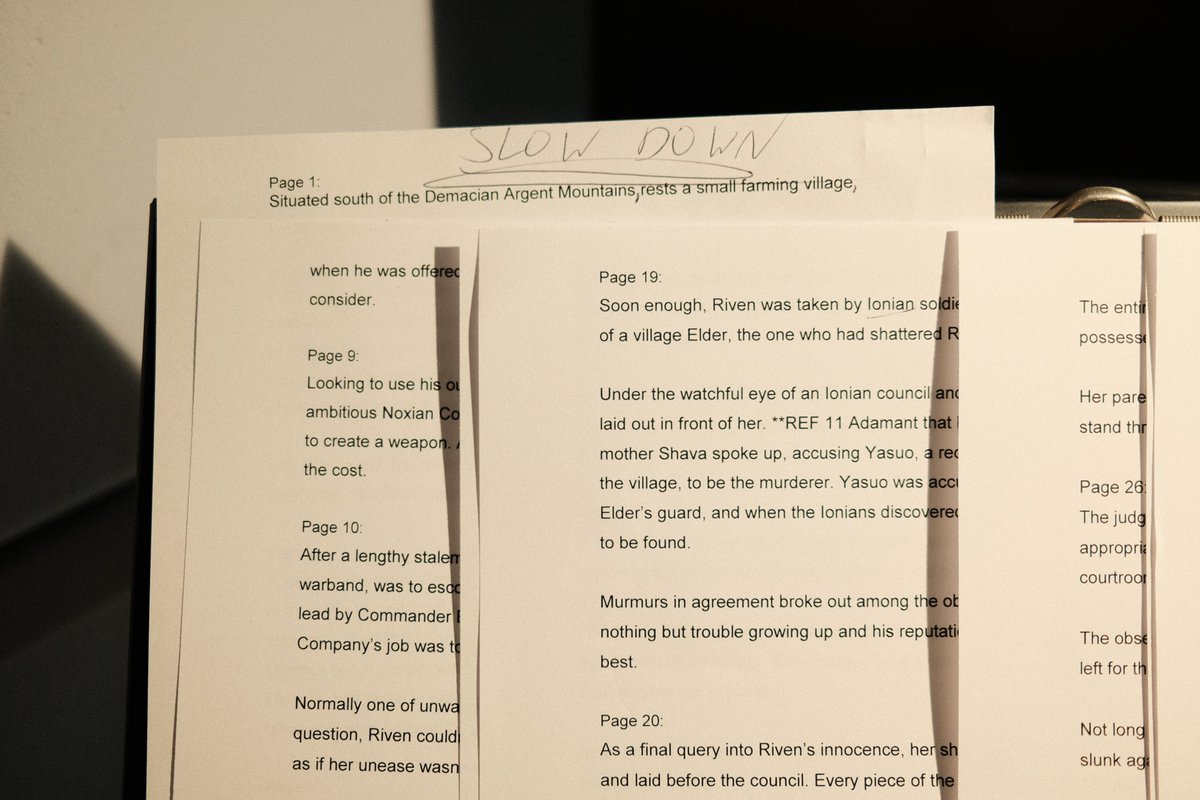 SLOW DOWN
Page 1:
Situated south of the Demacian Argent Mountains, rests a small farming village,
when he was offered
consider.
Page 9:
Looking to use his
ambitious Noxian
to create a weapon.
the cost.
Page 10:
After a lengthy
warband, was to
lead by Commander
Company's job was
Normally one of
question, Riven
as if her unease
Page 19:
Soon enough, Riven was taken by Ionian
of a village Elder, the one who had shattered
Under the watchful eye of an Ionian council and
laid out in front of her. **REF 11 Adamant that
mother Shava spoke up, accusing Yasuo, a
the village, to be the murderer. Yasuo was
Elder's guard, and when the Ionians discovered
to be found.
Murmurs in agreement broke out among the
nothing but trouble growing up and his
best.
Page 20:
As a final query into Riven's innocence, her
and laid before the council. Every piece of the
The
Her
stand
Page 26:
The
The
left for
Not long
slunk